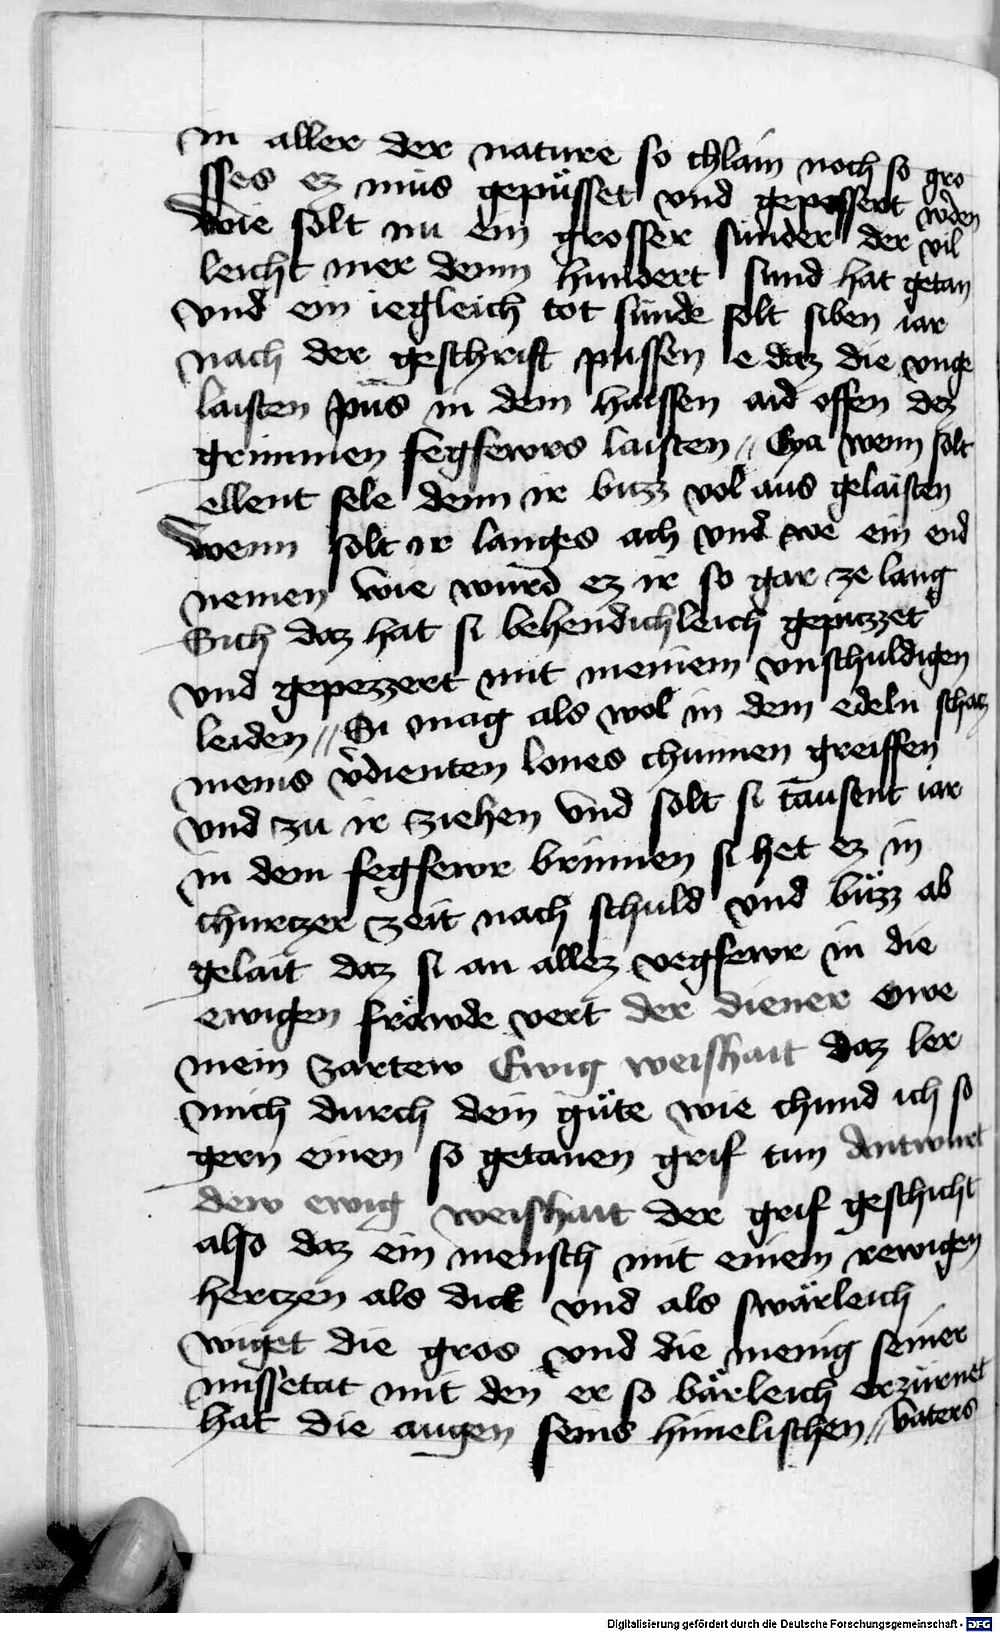 in aller der nature so chlain noch so gro
sses ez mus gepüsset vnd gepessert wˀden
wie solt nu ein grosser sunder der vil
leicht mer denn hundert sund hat getan
vnd ein iegleich tot sunde solt siben iar
nach der geschrift pussen e daz die vnge
laisten pus in dem haissen aid offen dez
grimmen fegfewrs laisten // Eya wenn solt
ellent sele denn ir buzz vol aus gelaisten
wenn solt ir langes ach vnd we ein end
nemen wie wurd ez ir so gar ze lang
Sich daz hat si behendichleich gepuzzet
vnd gepezzert mit meinem vnschuldigen
leiden // Si mag als wol in dem edeln schatz
meins v̉dienten lones chumen greiffen
vnd zu ir ziehen Vnd solt si tausent iar
in dem fegfewr brinnen si het ez in
churtzer zeit nach schuld vnd büzz ab
gelait daz si an allez vegfewr in die
ewigen fröwde vert der diener Owe
mein zartew Ewig weishait daz ler
mich durch dein güte wie chund ich so
gern einen so getanen grif tun Antwurt
dew ewig weishait der grif geschicht
also daz ein mensch mit einem rewigen
hertzen als dick vnd als swärleich
wiget die gros vnd die menig seiner
missetat mit den er so bärleich erzürnet
hat die augen seins himelischen // vaters
Digitalisierung gefördert durch die Deutsche Forschungsgemeinschaft - DFG